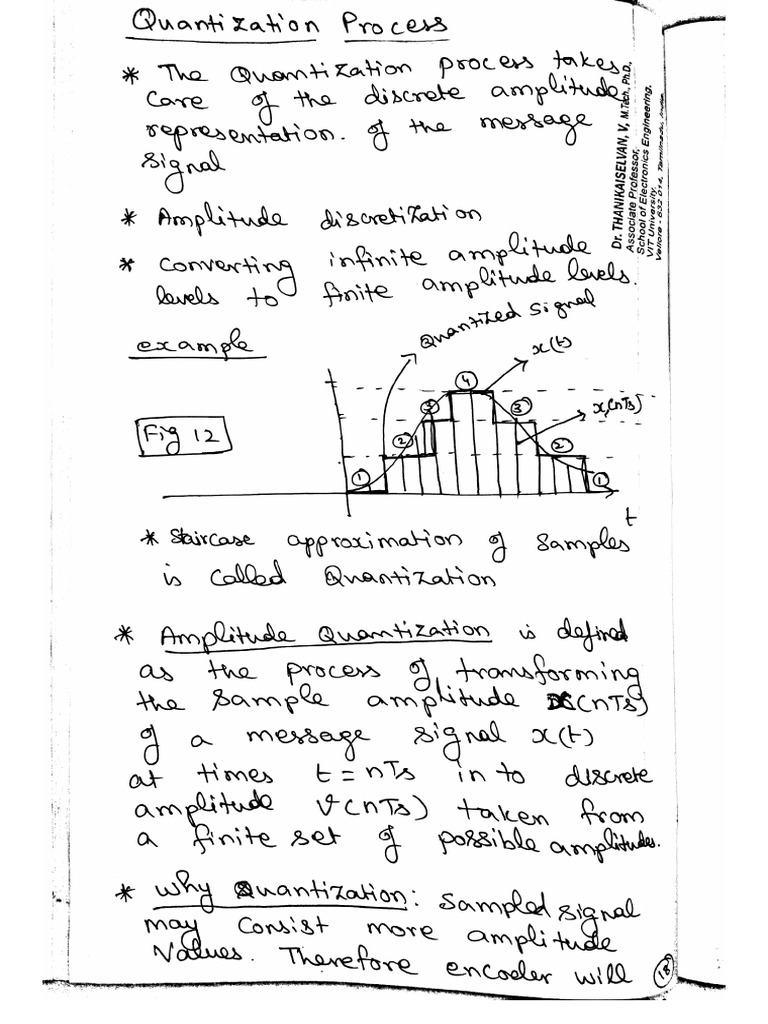 Quantization Process
* The Quantization process takes
care of the discrete amplitude
representation. of the message
signal
* Amplitude discretization
* converting infinite amplitude
levels to finite amplitude levels.
example
Quantized signal
x(t)
x(nTs)
Fig 12
1
2
3
4
3
2
1
t
* Staircase approximation of samples
is called Quantization
* Amplitude Quantization is defined
as the process of transforming
the sample amplitude x(nTs)
of a message signal x(t)
at times t = nTs in to discrete
amplitude v(nTs) taken from
a finite set of possible amplitudes.
* Why Quantization: Sampled signal
may consist more amplitude
values. Therefore encoder will
18
Dr. THANIKAISELVAN, V, M.Tech, Ph.D,
Associate Professor,
School of Electronics Engineering,
VIT University,
Vellore - 632 014, Tamilnadu, India